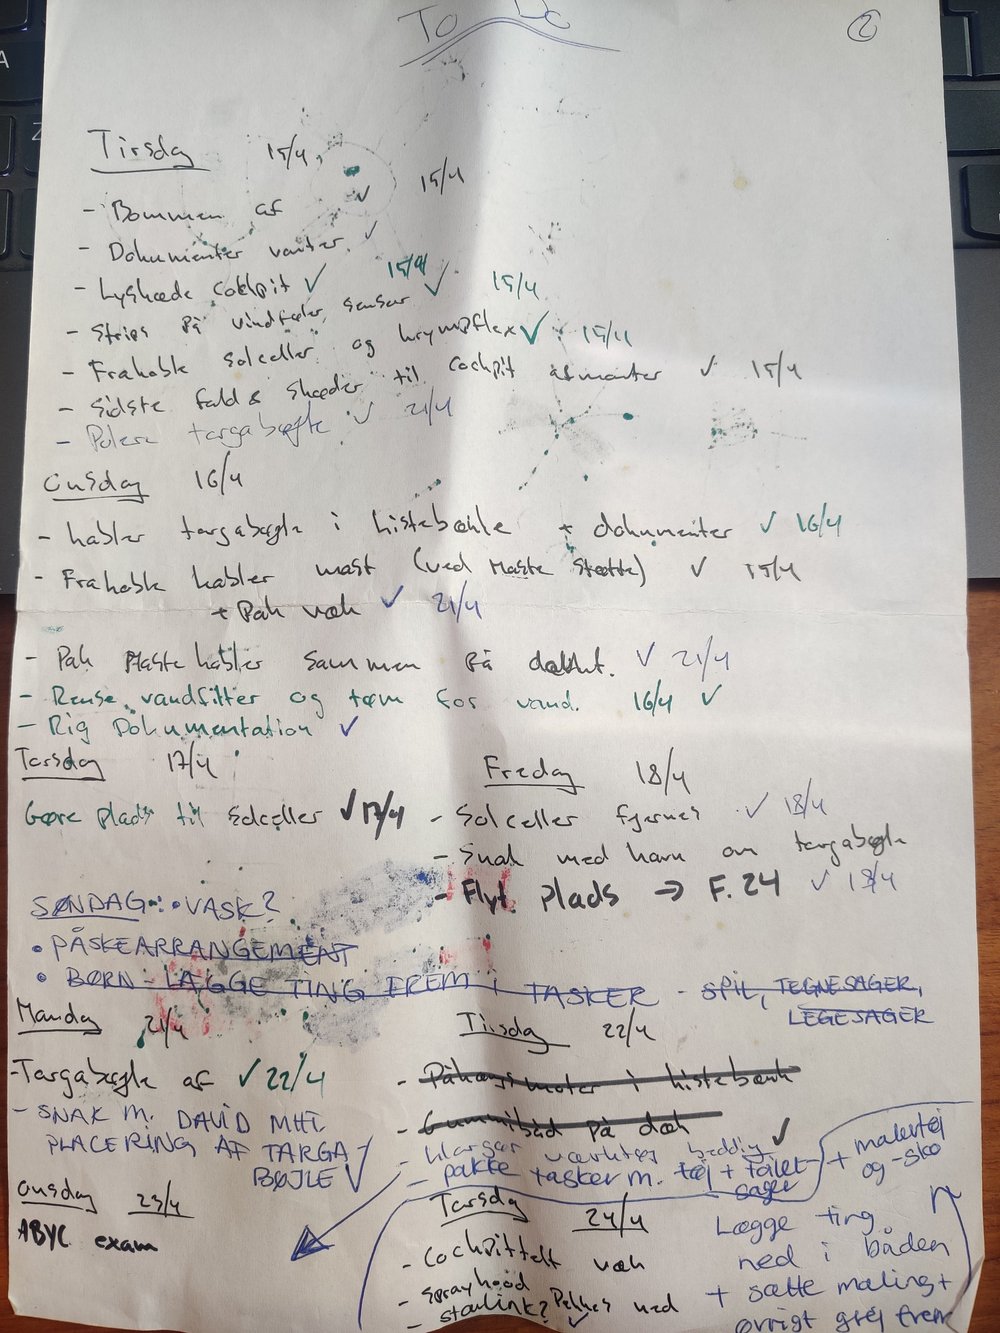 To Do
2
Tirsdag 15/4
- Bommen af ✓ 15/4
- Dokumenter vanter ✓
- Lyskæde cockpit ✓ 15/4
- Strips på vindføler sensor ✓ 15/4
- Frakoble solceller og krympflex ✓ 15/4
- Sidste fald & skøder til cockpit afmonter ✓ 15/4
- Polere targabøjle ✓ 21/4
Onsdag 16/4
- kabler targabøjle i kistebænke + dokumenter ✓ 16/4
- Frakoble kabler mast (ved Maste Støtte) ✓ 15/4
+ Pak væk ✓ 21/4
- Pak Mastekabler sammen på dækket. ✓ 21/4
- Rense vandfilter og tøm for vand. 16/4 ✓
- Rig Dokumentation ✓
Torsdag 17/4
Gøre plads til solceller ✓ 17/4
Fredag 18/4
- Solceller fjernes ✓ 18/4
- Snak med havn om targabøjle
- Flyt plads → F. 24 ✓ 18/4
SØNDAG: • VASK?
• PÅSKEARRANGEMENT
• BØRN - LÆGGE TING FREM I TASKER - SPIL, TEGNESAGER,
LEGESAGER
Mandag 21/4
- Targabøjle af ✓ 22/4
- SNAK M. DAVID MHT.
PLACERING AF TARGA-
BØJLE ✓
Tirsdag 22/4
- Påhængsmotor i kistebænk
- Gummibåd på dæk
- klargør værktøj beddig ✓
- pakke tasker m. tøj + toilet-
sager
+ malertøj
og -sko
Onsdag 23/4
ABYC exam
Torsdag 24/4
- Cockpittelt væk
- Sprayhood
- starlink? Pakkes ned ✓
Lægge ting
ned i båden
+ sætte maling +
øvrigt grej frem